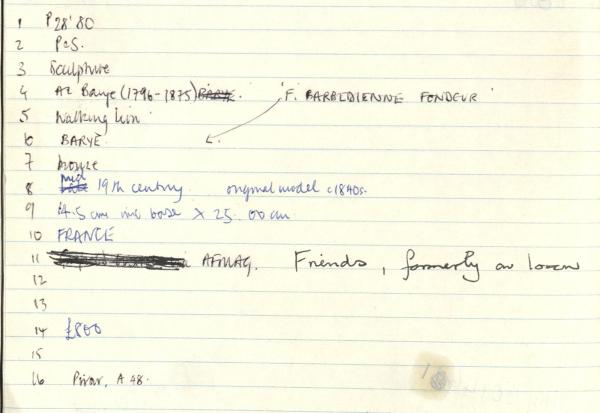 1 P28'80
2 P&S.
3 Sculpture
4 AL Barye (1796-1875) BARYE. 'F. BARBEDIENNE FONDEUR'
5 Walking lion
6 BARYE L.
7 bronze
8 mid 19th century original model c1840s.
9 14.5 cm inc base X 25.00 cm
10 FRANCE
11 AFMAG. Friends, formerly on loan
12
13
14 £800
15
16 Pivar, A 48.